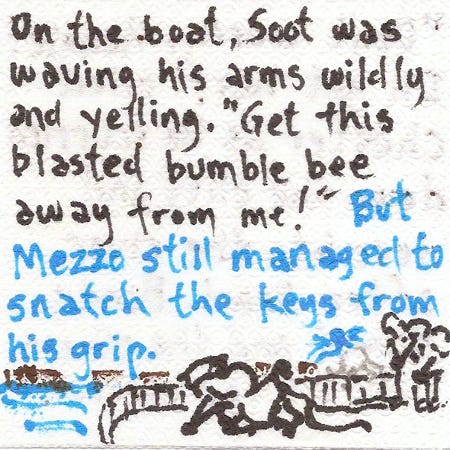 On the boat, Soot was
waving his arms wildly
and yelling. "Get this
blasted bumble bee
away from me!" But
Mezzo still managed to
snatch the keys from
his grip.